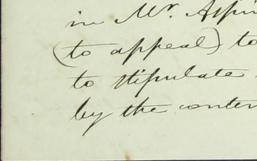 in Mr. Aspi
(to appeal) to
to stipulate
by the conten